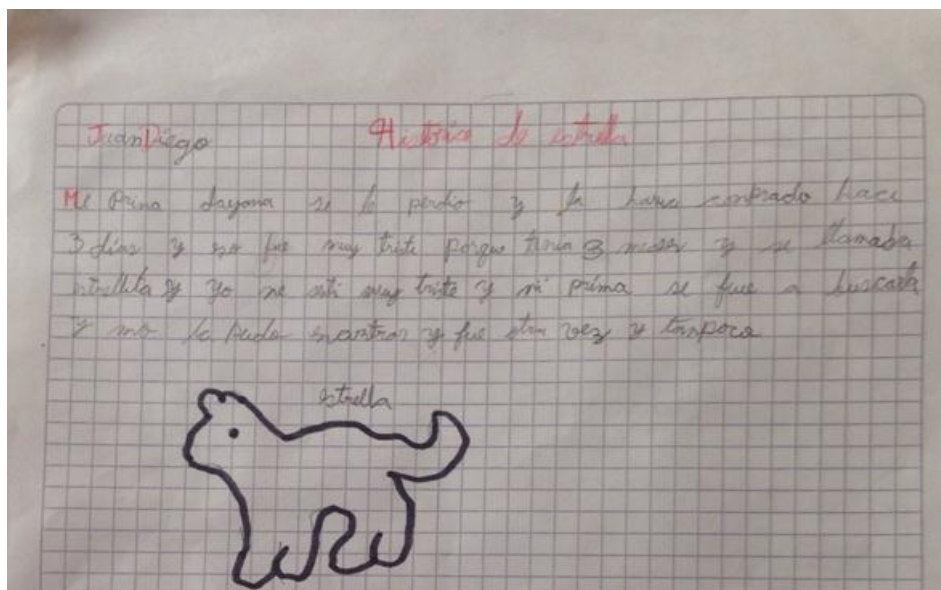 JuanDiego Historia de estrella
Mi prima dayana se le perdio y la havia conprado hace
3 dias y eso fue muy triste porque tenia 3 meses y se llamaba
estrellita y yo me senti muy triste y mi prima se fue a buscarla
y no la pudo encontrar y fue otra vez y tanpoco
estrella